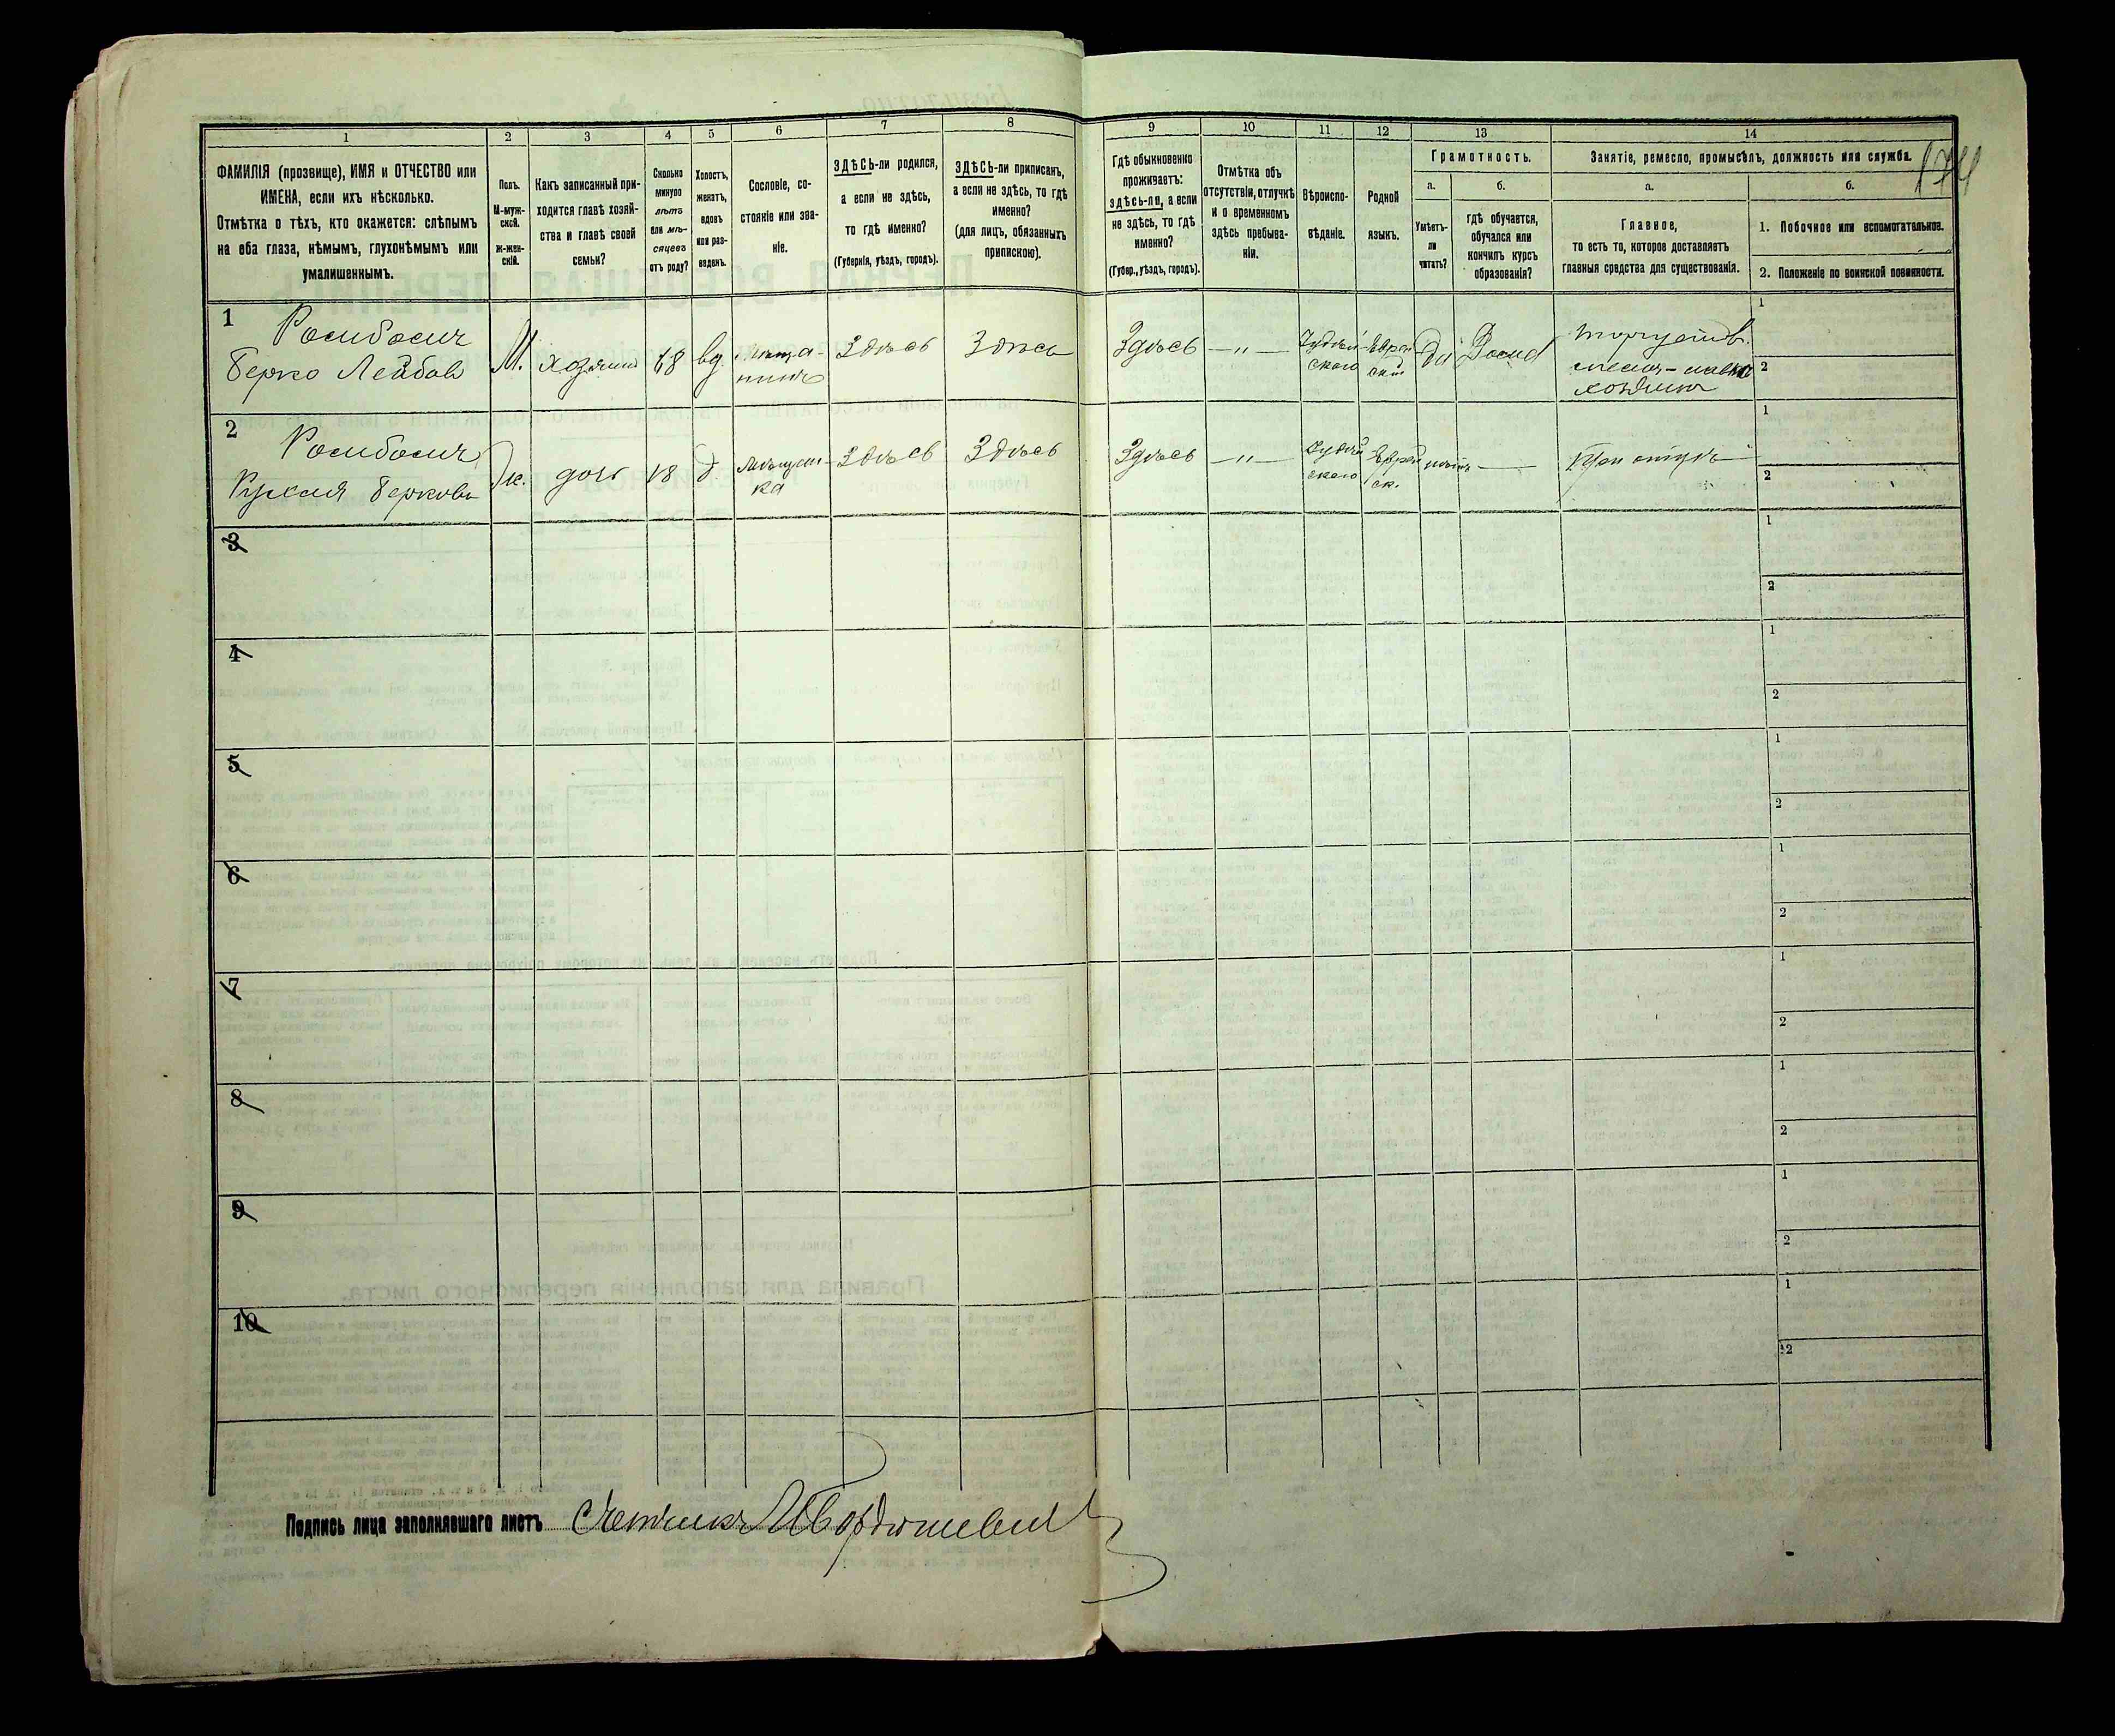 174
1
2
3
4
5
6
7
8
9
10
11
12
13
14
ФАМИЛІЯ (прозвище), ИМЯ и ОТЧЕСТВО или
ИМЕНА, если ихъ нѣсколько.
Отмѣтка о тѣхъ, кто окажется: слѣпымъ
на оба глаза, нѣмымъ, глухонѣмымъ или
умалишеннымъ.
Полъ.
М-муж-
ской.
ж-жен-
скій.
Какъ записанный при-
ходится главѣ хозяй-
ства и главѣ своей
семьи?
Сколько
минуло
лѣтъ
или мѣ-
сяцевъ
отъ роду?
Холостъ,
женатъ,
вдовъ
или раз-
веденъ.
Сословіе, со-
стояніе или зва-
ніе.
ЗДѢСЬ-ли родился,
а если не здѣсь,
то гдѣ именно?
(Губернія, уѣздъ, городъ).
ЗДѢСЬ-ли приписанъ,
а если не здѣсь, то гдѣ
именно?
(для лицъ, обязанныхъ
припискою).
Гдѣ обыкновенно
проживаетъ:
здѣсь-ли, а если
не здѣсь, то гдѣ
именно?
(Губер., уѣздъ, городъ).
Отмѣтка объ
отсутствіи, отлучкѣ
и о временномъ
здѣсь пребыва-
ніи.
Вѣроиспо-
вѣданіе.
Родной
языкъ.
Грамотность.
а.
Умѣетъ-
ли
читать?
б.
гдѣ обучается,
обучался или
кончилъ курсъ
образованія?
Занятіе, ремесло, промыселъ, должность или служба.
а.
Главное,
то есть то, которое доставляетъ
главныя средства для существованія.
б.
1. Побочное или вспомогательное.
2. Положеніе по воинской повинности.
1
Берко Лейбов
М.
хозяинъ
68
вд.
Мѣща-
нинъ
Здѣсь
Здѣсь
Здѣсь
— „ —
Іудей-
скаго
Еврей
ск.
да
Дома
1
2
2
Берковъ
Ж.
дочь
18
д
ка
Здѣсь
Здѣсь
Здѣсь
— „ —
Іудей
скаго
Еврей
ск.
нѣтъ
—
При отцѣ
1
2
3
1
2
4
1
2
5
1
2
6
1
2
7
1
2
8
1
2
9
1
2
10
1
2
Подпись лица заполнявшаго листъ
Счетчикъ